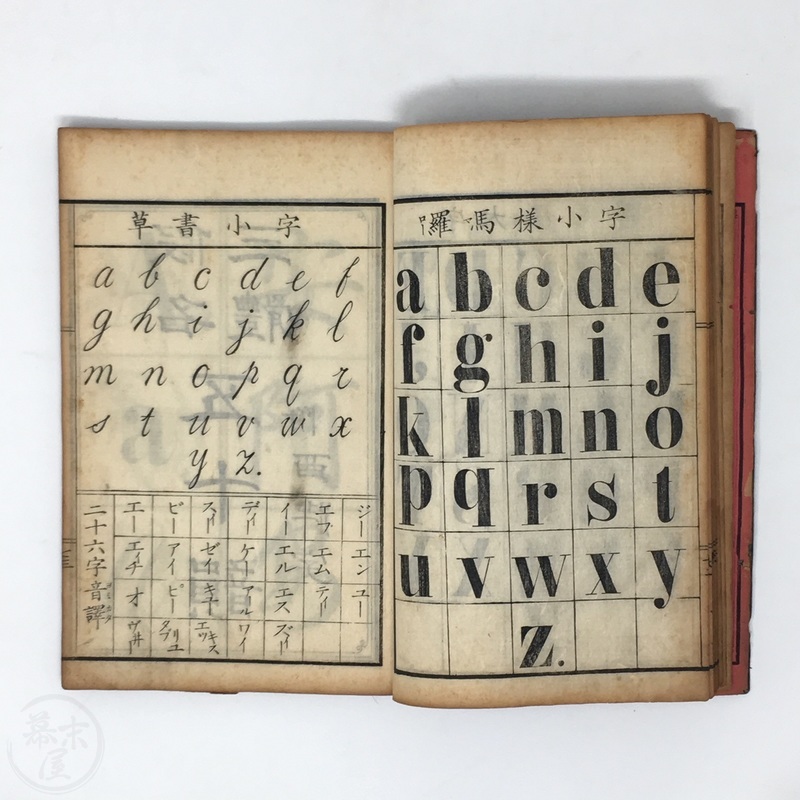 草書小字
a b c d e f
g h i j k l
m n o p q r
s t u v w x
y z.
エー ビー スィー ディー イー エフ ジー
エイチ アイ ゼイ ケー エル エム エン
オ ピー キュー アール エス ティー ユー
ヴィー ダブリユ エッキス ワイ ズィー
二十六字音譯
囉馬様小字
a b c d e
f g h i j
k l m n o
p q r s t
u v w x y
z.
幕末屋